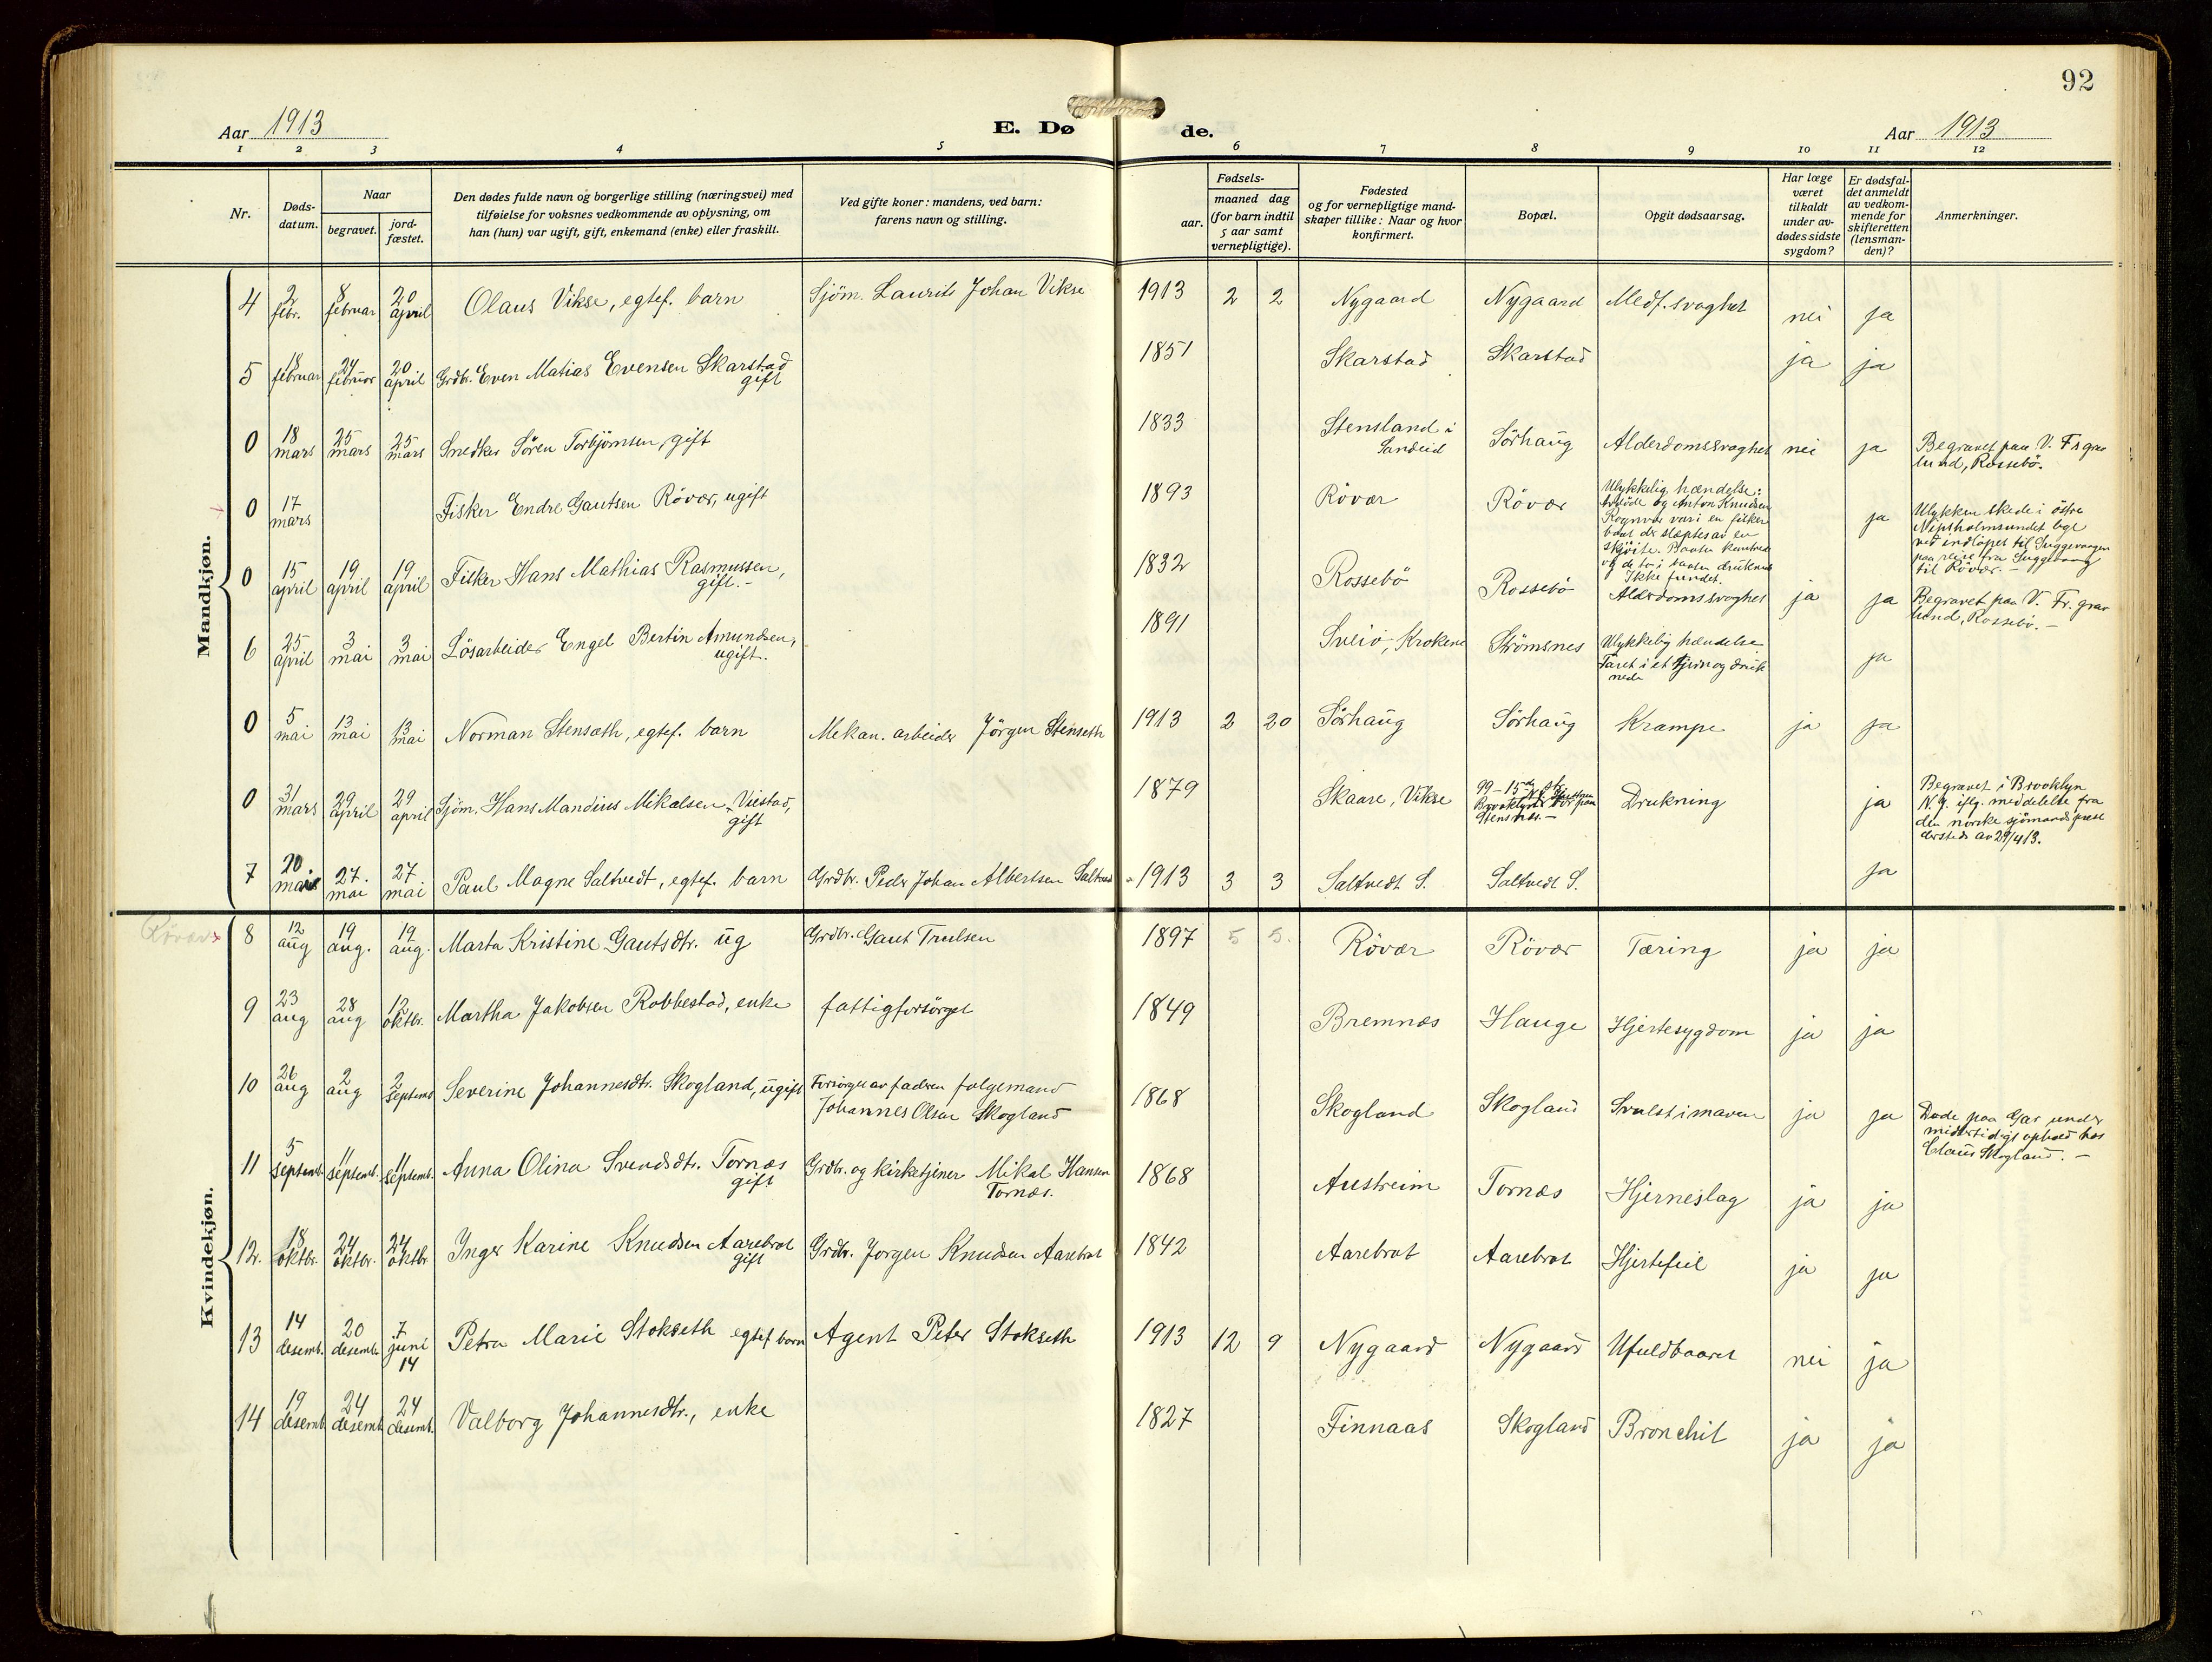 92
Aar 1913
E. Dø
de.
Aar 1913
1 2 3 4 5 6 7 8 9 10 11 12
Nr.
Døds-
datum.
Naar
begravet.
jord-
fæstet.
Den dødes fulde navn og borgerlige stilling (næringsvei) med
tilføielse for voksnes vedkommende av oplysning, om
han (hun) var ugift, gift, enkemand (enke) eller fraskilt.
Ved gifte koner: mandens, ved barn:
farens navn og stilling.
Fødsels-
aar.
maaned dag
(for barn indtil
5 aar samt
vernepligtige).
Fødested
og for vernepligtige mand-
skaper tillike: Naar og hvor
konfirmert.
Bopæl.
Opgit dødsaarsag.
Har læge
været
tilkaldt
under av-
dødes sidste
sygdom?
Er dødsfal-
det anmeldt
av vedkom-
mende for
skifteretten
(lensman-
den)?
Anmerkninger.
Mandkjøn.
4 2 febr. 8 februar 20 april Olaus Vikse, egtef. barn Sjöm. Laurits Johan Vikse 1913 2 2 Nygaard Nygaard Medf. svaghet nei ja
5 18 februar 24 februar 20 april Grdbr. Even Matias Evensen Skarstad
gift 1851 Skarstad Skarstad ja ja
0 18 mars 25 mars 25 mars Snedker Sören Torbjörnsen, gift 1833 Stensland i
Sandeid Sörhaug Alderdomssvaghet nei ja Begravet paa V. Fr grav
lund, Rossebö.
0 17 mars Fisker Endre Gautsen Rövær, ugift 1893 Rövær Rövær Ulykkelig hændelse:
og Anton Knudsen
var i en fisker
baat der slæptes av en
skjöite. Baaten kantret
og de to i baaten druknet
Ikke fundet. ja Ulykken skede i östre
ved indlöpet til
paa reise fra
til Rövær. -
0 15 april 19 april 19 april Fisker Hans Mathias Rasmussen,
gift. - 1832 Rossebö Rossebö Alderdomssvaghet ja ja Begravet paa V. Fr. grav
lund, Rossebö. -
6 25 april 3 mai 3 mai Lösarbeider Engel Bertin Amundsen,
ugift. 1891 Sveio, Krokene Strömsnes Ulykkelig hændelse
Faret i et tjern og druk
nede ja
0 5 mai 13 mai 13 mai Norman Stenseth, egtef. barn Mekan. arbeider Jörgen Stenseth 1913 2 20 Sörhaug Sörhaug Krampe ja ja
0 31 mars 29 april 29 april Sjöm. Hans Mandius Mikalsen Viestad,
gift 1879 Skaare, Vikse 99 - 15
Brooklyn bor paa
Stensnes. - Drukning ja Begravet i Brooklyn
N.Y. iflg. meddelelse fra
den norske sjömandsprest
dersteds av 29/4 13.
7 20. mai 27. mai 27 mai Paul Magne Saltvedt, egtef. barn Grdbr. Peder Johan Albertsen Saltvedt 1913 3 3 Saltvedt S. Saltvedt S. ja
Kvindekjøn.
Rövær
8 12 aug 19 aug. 19 aug. Marta Kristine Gautsdtr. ug Grdbr. Gaut Trulsen 1897 5 5. Rövær Rövær Tæring ja ja
9 23 aug 28 aug 12 oktbr. Martha Jakobsen Robbestad, enke fattigforsörget 1849 Bremnæs Hauge Hjertesygdom ja ja
10 26 aug 2 aug 2 septemb Severine Johannesdtr. Skogland, ugift Forsörget av faderen folgemand
Johannes Olsen Skogland 1868 Skogland Skogland Svulst i maven ja ja Döde paa Gar under
midlertidigt ophold hos
Claus Skogland. -
11 5 septemb. 11 septemb. 11 septemb. Anna Olina Svendsdtr. Tornæs
gift Grdbr. og kirketjener Mikal Hansen
Tornæs. 1868 Austreim Tornæs Hjerneslag ja ja
12. 18 oktbr. 24 oktbr. 24 oktbr Inger Karine Knudsen Aarebrot
gift Grdbr. Jorgen Knudsen Aarebrot 1842 Aarebrot Aarebrot Hjertefeil ja ja
13 14 desemb. 20 desemb. 7 juni 14 Petra Marie Stokseth egtef. barn Agent Peter Stokseth 1913 12 9 Nygaard Nygaard Ufuldbaaret nei ja
14 19 desemb. 24 desemb. 24 desemb. Valborg Johannesdtr., enke 1827 Finnaas Skogland Bronchit ja ja